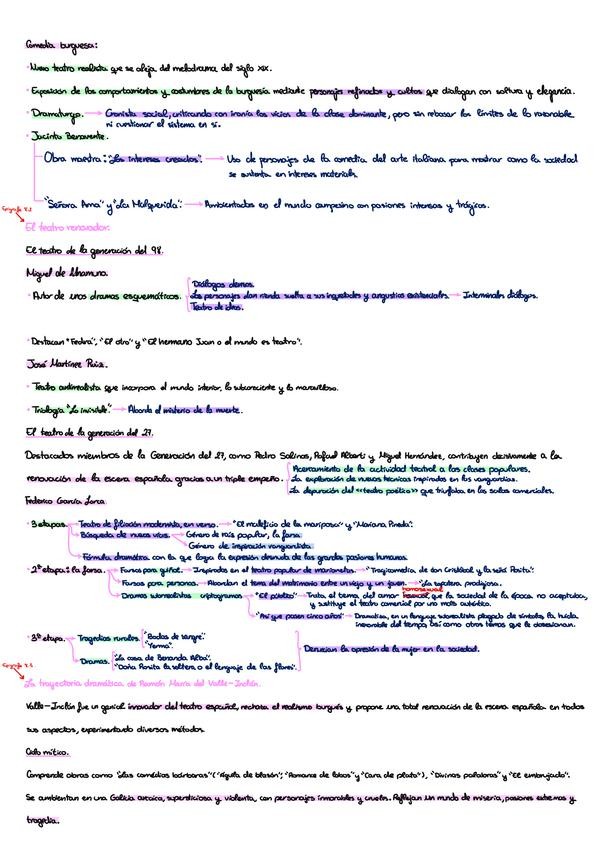 Comedia burguesa:
· Nuevo teatro realista que se aleja del melodrama del siglo XIX.
· Exposición de los comportamientos y costumbres de la burguesía mediante personajes refinados y cultos que dialogan con soltura y elegancia.
· Dramaturgo. → Cronista social, criticando con ironía los vicios de la clase dominante, pero sin rebasar los límites de lo razonable
ni cuestionar el sistema en sí.
· Jacinto Benavente.
Obra maestra: "Los intereses creados". → Uso de personajes de la comedia del arte italiana para mostrar como la sociedad
se sustenta en intereses materiales.
"Señora Ama" y "La Malquerida". → Ambientados en el mundo campesino con pasiones intensas y trágicas.
El teatro renovador.
El teatro de la generación del 98.
Miguel de Unamuno.
· Autor de unos dramas esquemáticos.
Diálogos densos.
Los personajes dan rienda suelta a sus inquietudes y angustias existenciales. → Interminables diálogos.
Teatro de ideas.
· Destacan "Fedra", "El otro" y "El hermano Juan o el mundo es teatro".
José Martínez Ruiz.
· Teatro antirrealista que incorpora el mundo interior, lo subconsciente y lo maravilloso.
· Triología "Lo invisible". → Aborda el misterio de la muerte.
El teatro de la generación del 27.
Destacados miembros de la Generación del 27, como Pedro Salinas, Rafael Alberti y Miguel Hernández, contribuyen decisivamente a la
renovación de la escena española gracias a un triple empeño.
Acercamiento de la actividad teatral a las clases populares.
La exploración de nuevas técnicas inspiradas en las vanguardias.
La depuración del «teatro poético» que triunfaba en las salas comerciales.
Federico García Lorca.
· 3 etapas.
Teatro de filiación modernista, en verso. → "El maleficio de la mariposa" y "Mariana Pineda".
Búsqueda de nuevas vías.
Género de raíz popular, la farsa.
Género de inspiración vanguardista.
Fórmula dramática con la que logra la expresión desnuda de las grandes pasiones humanas.
· 2ª etapa: la farsa.
Farsas para guiñol. → Inspiradas en el teatro popular de marionetas. → "Tragicomedia de don Cristóbal y la señá Rosita".
Farsas para personas. → Abordan el tema del matrimonio entre un viejo y un joven. → "La zapatera prodigiosa.
Dramas surrealistas criptogramas
homosexual
"El público" → Trata el tema del amor que la sociedad de la época no aceptaba,
y sustituye el teatro comercial por uno más auténtico.
"Así que pasen cinco años" → Dramatiza, en un lenguaje surrealista plagado de símbolos, la huida
inexorable del tiempo, así como otros temas que le obsesionan.
· 3ª etapa.
Tragedias rurales.
"Bodas de sangre".
"Yerma".
Dramas.
"La casa de Bernarda Alba".
"Doña Rosita la soltera o el lenguaje de las flores".
Denuncian la opresión de la mujer en la sociedad.
La trayectoria dramática de Ramón María del Valle-Inclán.
Valle-Inclán fue un genial innovador del teatro español, rechaza el realismo burgués y propone una total renovación de la escena española en todos
sus aspectos, experimentando diversos métodos.
Ciclo mítico.
Comprende obras como "Las comedias bárbaras" ("Águila de blasón", "Romance de lobos" y "Cara de plata"), "Divinas palabras" y "El embrujado".
Se ambientan en una Galicia arcaica, supersticiosa y violenta, con personajes inmorales y crueles. Reflejan un mundo de miseria, pasiones extremas y
tragedia.